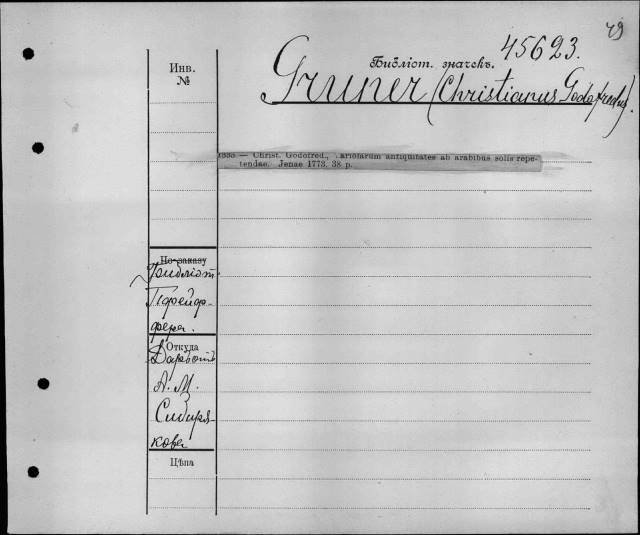 49
45623.
Библіот. значекъ.
Инв.
№
Gruner (Christianus Godofredus).
— Christ. Godofred., Variolarum antiquitates ab arabibus solis repe-
tendae. Jenae 1773. 38 p.
По заказу
Библіот.
Пфейф-
фера.
Откуда
Даръ отъ
А. М.
Сибиря-
кова
Цѣна